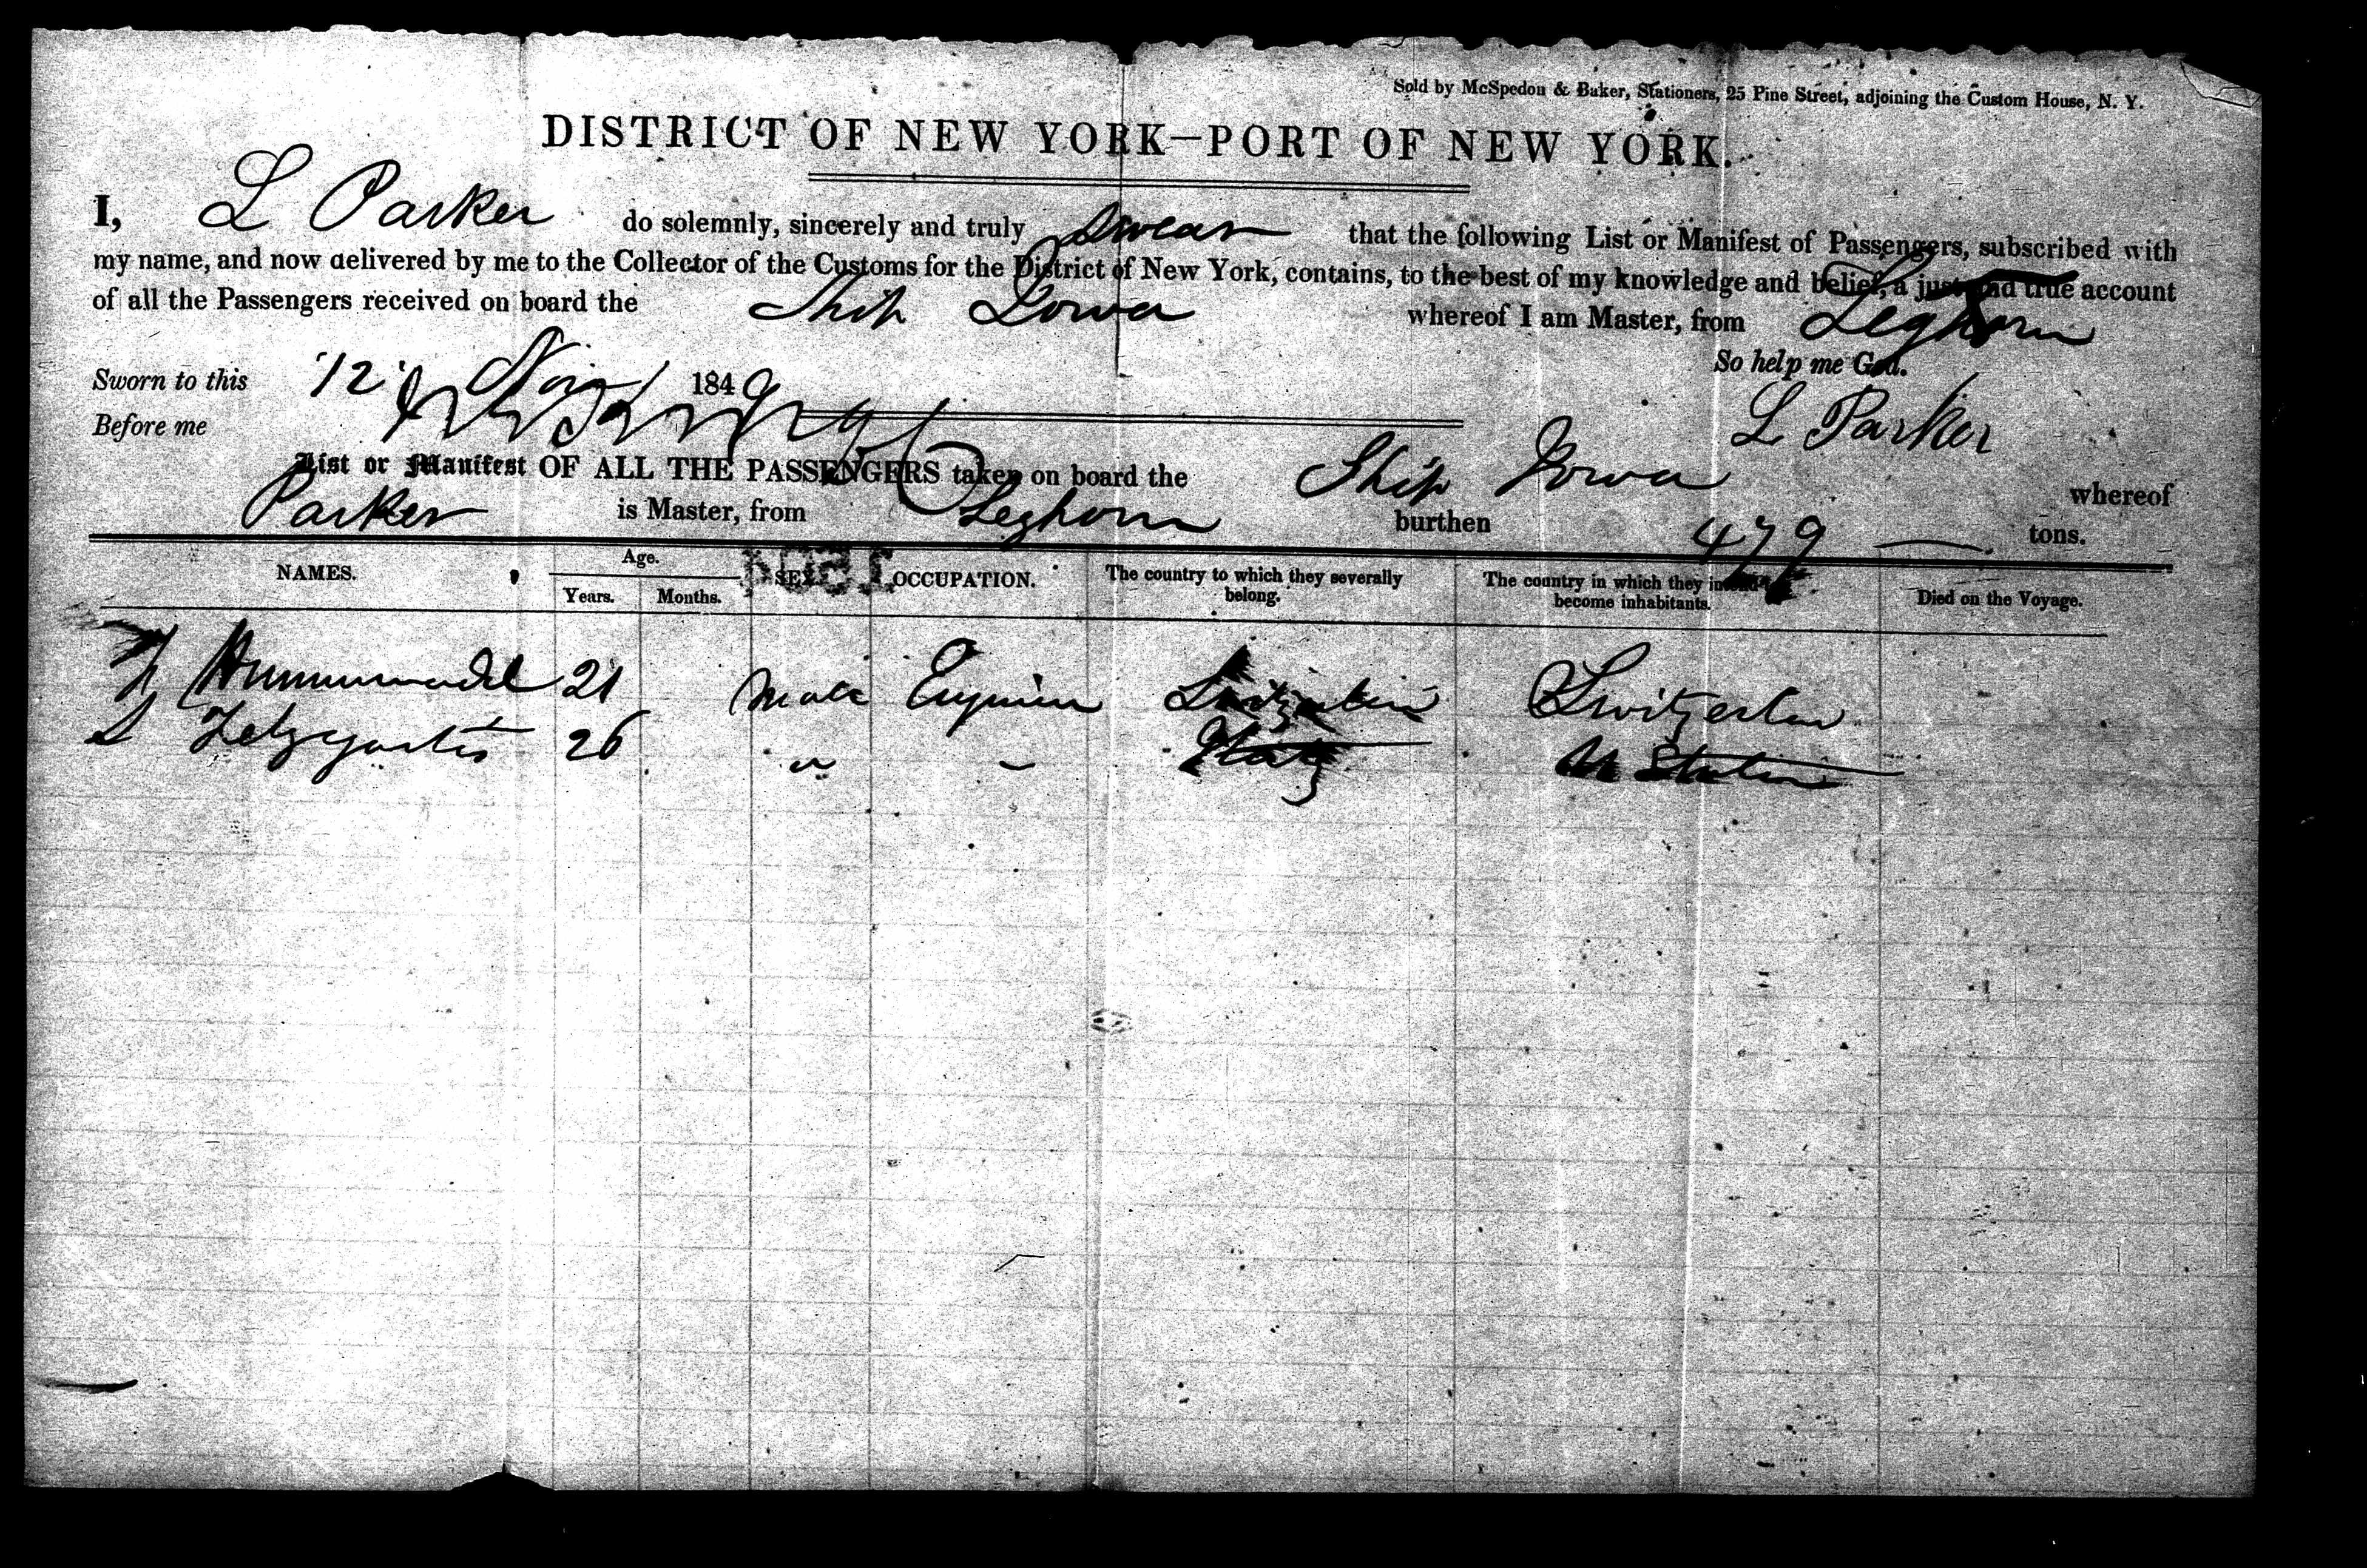 Sold by McSpedon & Baker, Stationers, 25 Pine Street, adjoining the Custom House, N. Y.
DISTRICT OF NEW YORK—PORT OF NEW YORK.
I, L Parker do solemnly, sincerely and truly Swear that the following List or Manifest of Passengers, subscribed with
my name, and now delivered by me to the Collector of the Customs for the District of New York, contains, to the best of my knowledge and belief, a just and true account
of all the Passengers received on board the Ship Iowa whereof I am Master, from Leghorn
So help me God.
Sworn to this 12 Nov 1849
L Parker
Before me
List or Manifest OF ALL THE PASSENGERS taken on board the Ship Iowa whereof
Parker is Master, from Leghorn burthen 479 tons.
NAMES. Age. SEX OCCUPATION. The country to which they severally The country in which they intend to
Years. Months. belong. become inhabitants. Died on the Voyage.
21 Male Switzerlan
26 " " Italy U States